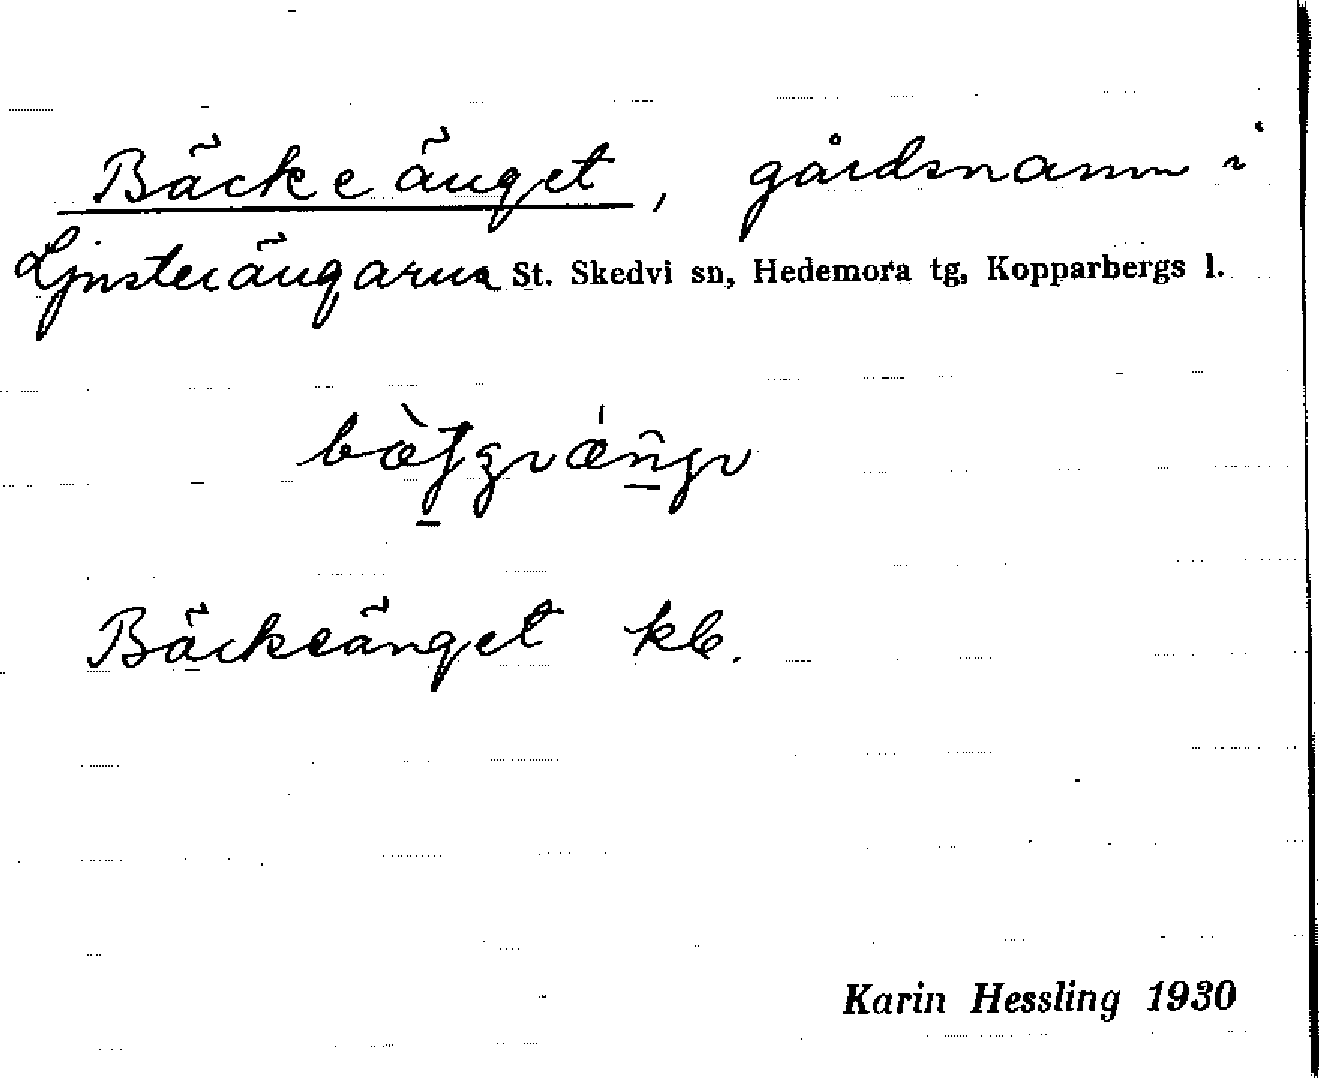 Bäckeänget, gårdsnamn i
Ljusterängarna St. Skedvi sn, Hedemora tg, Kopparbergs l.
Bäckeänget kb.
Karin Hessling 1930